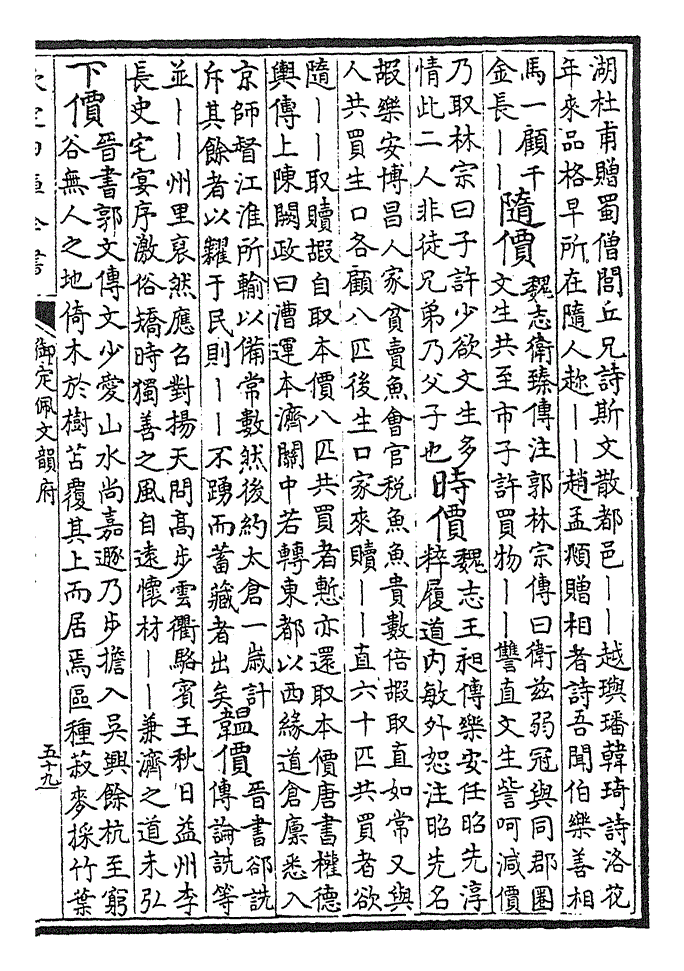 湖杜甫贈蜀僧閭丘兄詩斯文散都邑——越璵璠韓琦詩洛花
年來品格早所在隨人趂——趙孟頫贈相者詩吾聞伯樂善相
馬一顧千
金長——
隨價
魏志衛臻傳注郭林宗傳曰衛兹弱冠與同郡圈
文生共至市子許買物——讐直文生訾呵減價
乃取林宗曰子許少欲文生多
情此二人非徒兄弟乃父子也
時價
魏志王昶傳樂安任昭先淳
粹履道内敏外恕注昭先名
嘏樂安博昌人家貧賣魚會官税魚魚貴數倍嘏取直如常又與
人共買生口各顧八匹後生口家來贖——直六十匹共買者欲
隨——取贖嘏自取本價八匹共買者慙亦還取本價唐書權德
輿傳上陳闕政曰漕運本濟關中若轉東都以西緣道倉廩悉入
京師督江淮所輸以備常數然後約太倉一嵗計
斥其餘者以糶于民則——不踴而蓄藏者出矣
韞價
晉書郤詵
傳論詵等
並——州里裒然應召對揚天問高步雲衢駱賓王秋日益州李
長史宅宴序激俗矯時獨善之風自遠懷材——兼濟之道未弘
下價
晉書郭文傳文少愛山水尚嘉遯乃步擔入吳興餘杭至窮
谷無人之地倚木於樹苫覆其上而居焉區種菽麥採竹葉
欽定四庫全書
御定佩文韻府
五十九